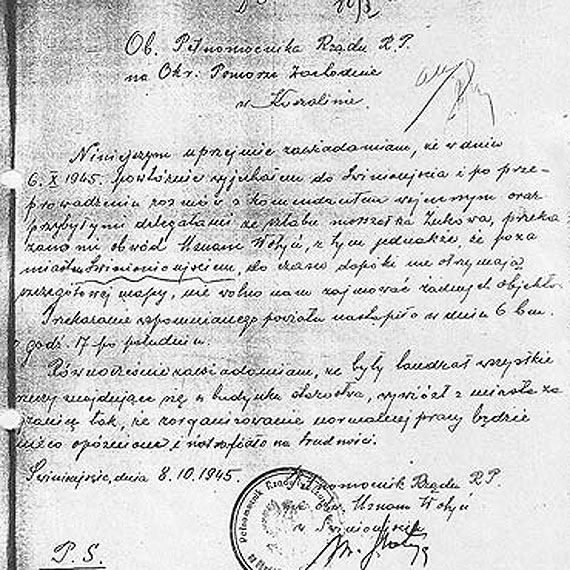 Ob. Pełnomocnika Rządu R.P.
na Okr. Pomorze Zachodnie
w Koszalinie.
Niniejszym uprzejmie zawiadamiam, że w dniu
6.X 1945. powtórnie wyjechałem do Świnoujścia i po prze-
prowadzeniu rozmów z komendantem wojennym oraz
przybyłymi delegatami ze sztabu marszałka Żukowa, przeka
zano mi obwód Uznam Wołyń, z tym jednakże, że poza
miastem Świnioujściem, do czasu dopóki nie otrzymają
szczegółowej mapy, nie wolno nam zajmować żadnych objektów
Przekazanie wspomnianego powiatu nastąpiło w dniu 6 bm.
o godz. 17 po południu.
Równocześnie zawiadamiam, że były landrat wszystkie
znajdujące się w budynku starostwa, wywiózł z miasta za
granicę tak, że zorganizowanie normalnej pracy będzie
nieco opóźnione i natrafiało na trudności.
Świnioujście, dnia 8.10.1945.
Pełnomocnik Rządu R.P.
na obw. Uznam Wołyń
w Świnioujściu
Pełnomocnik Rządu
P.S.